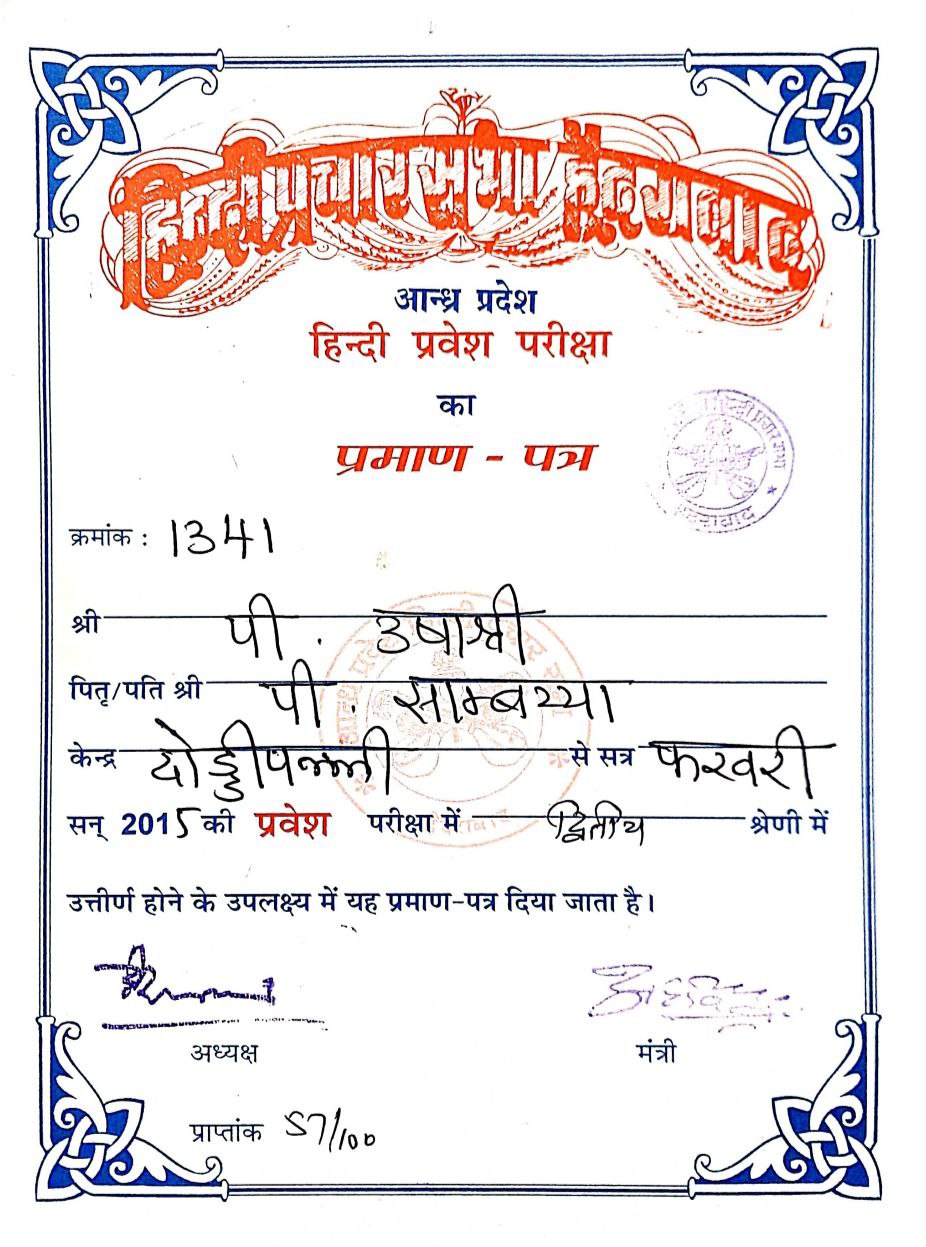 हिन्दी प्रचार सभा हैदराबाद
आन्ध्र प्रदेश
हिन्दी प्रवेश परीक्षा
का
प्रमाण - पत्र
क्रमांक : 1341
श्री पी. उषाश्री
पितृ/पति श्री पी. साम्बय्या
केन्द्र दोड्डीपल्ली से सत्र फरवरी
सन् 2015 की प्रवेश परीक्षा में द्वितीय श्रेणी में
उत्तीर्ण होने के उपलक्ष्य में यह प्रमाण-पत्र दिया जाता है।
अध्यक्ष मंत्री
प्राप्तांक 57/100